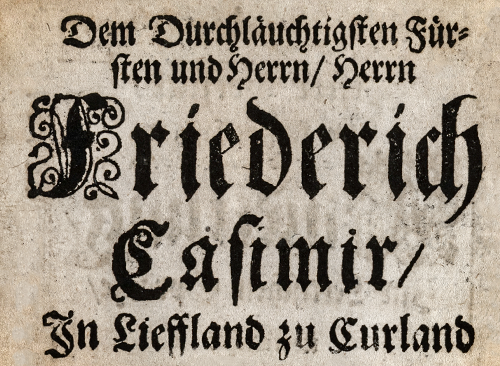 Dem Durchläuchtigſten Für⸗
ſten und Herrn/ Herrn
Friederich
Caſimir/
In Lieffland zu Curland